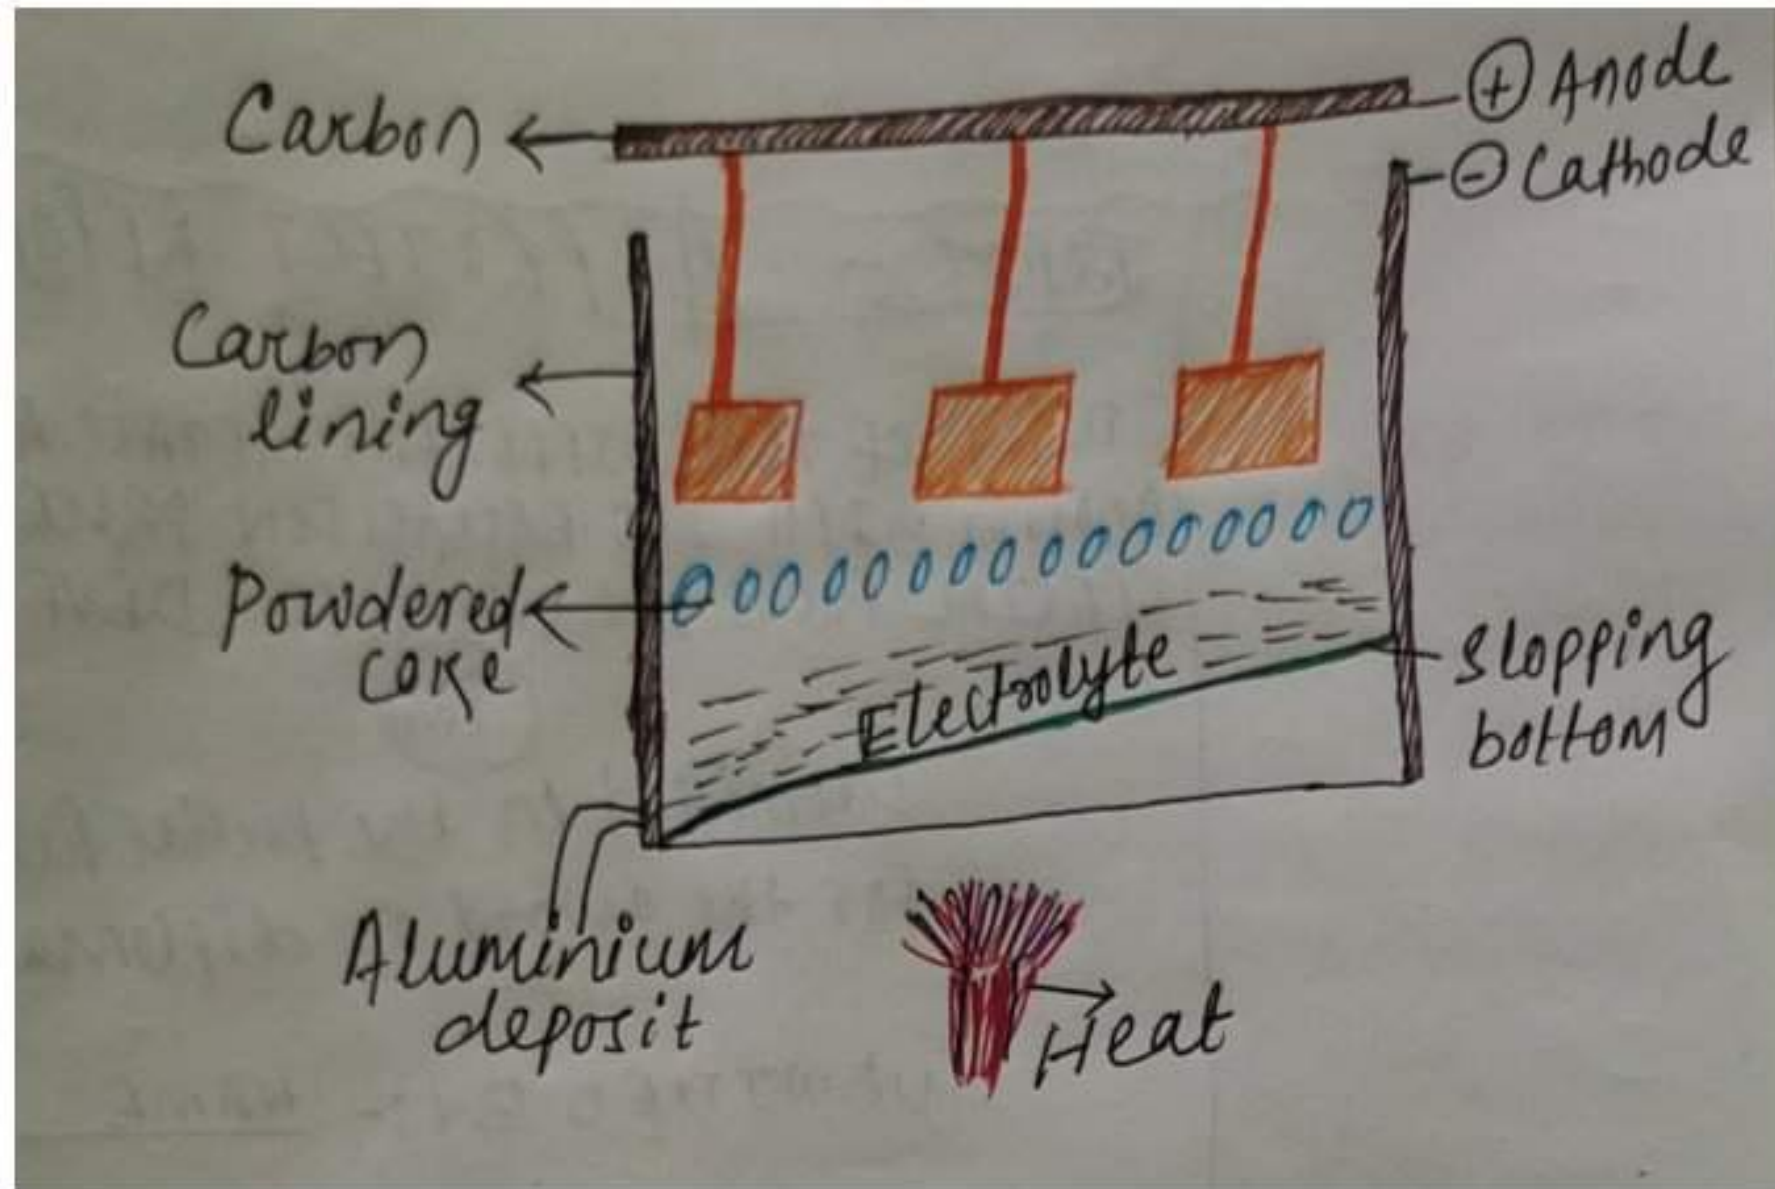 Carbon
⊕ Anode
⊖ Cathode
Carbon
lining
Powdered
coke
Electrolyte
Slopping
bottom
Aluminium
deposit
Heat